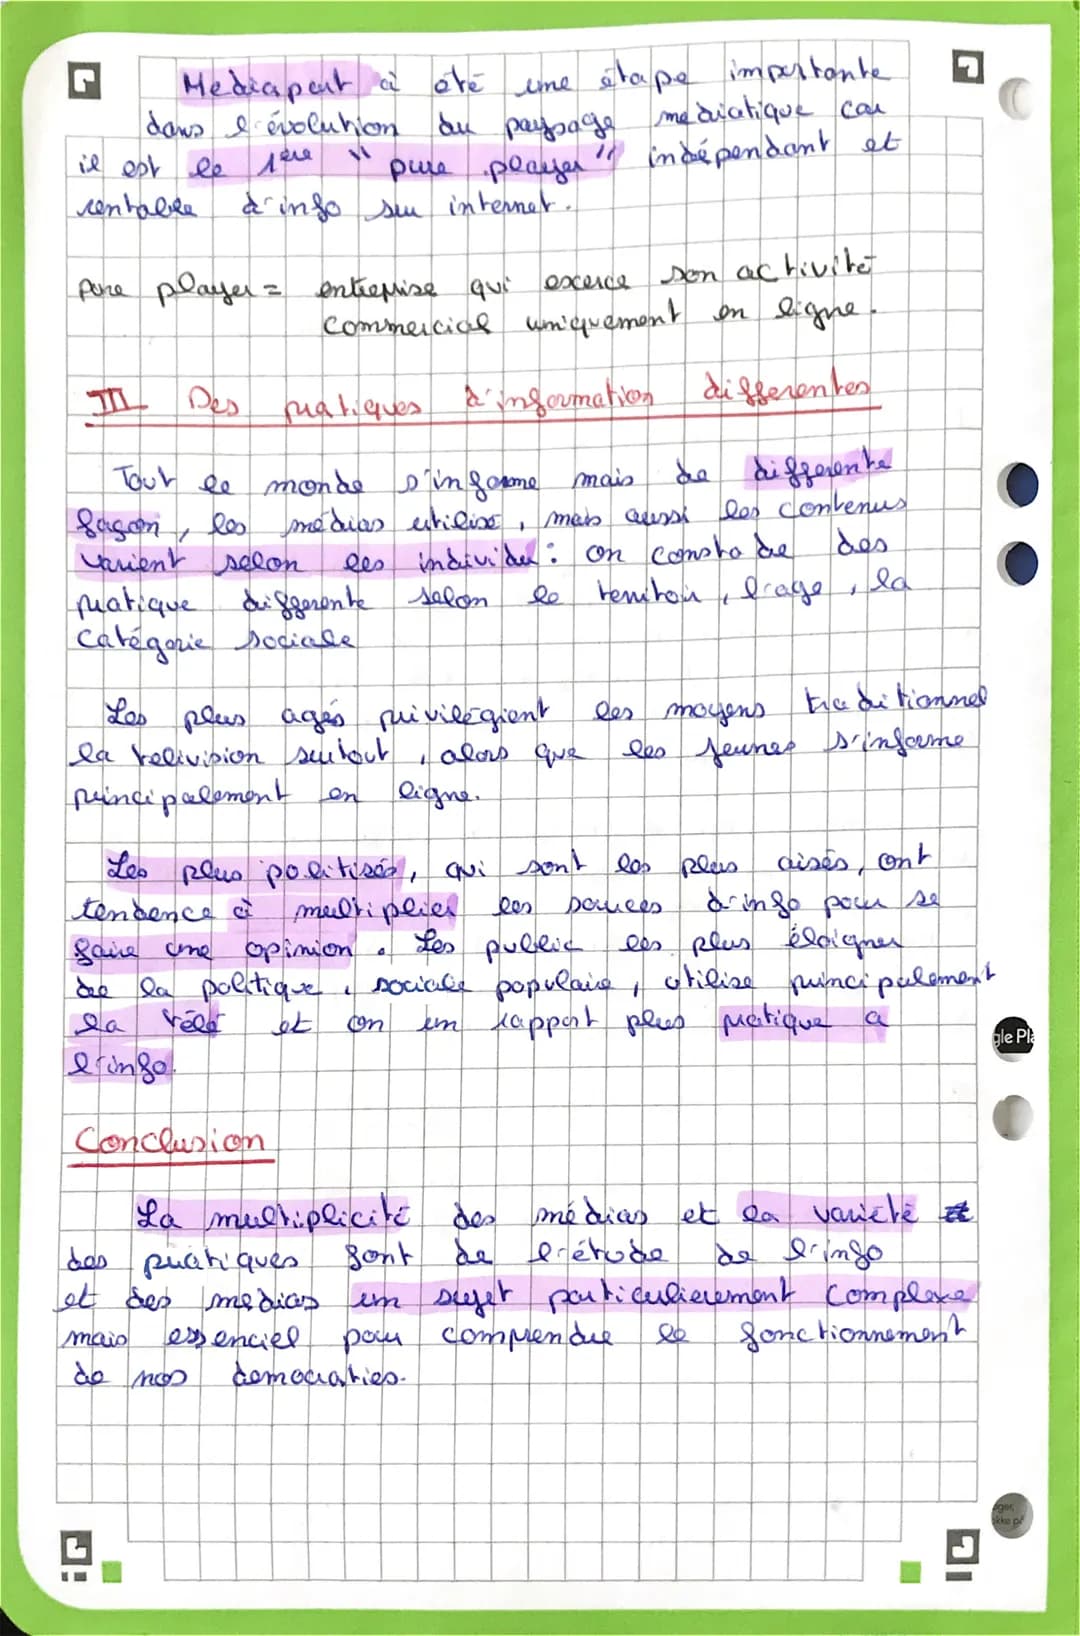 Mediapart à été une étape importante
dans l'évolution du paysage mediatique car
il est le 1ère "pure player" indépendant et
rentable d'info sur internet.
pure player = entreprise qui excerce son activité
commercial uniquement en ligne.
III Des pratiques d'information differentes
Tout le monde s'informe mais de differente
façon, les médias utilisé, mais aussi les contenus
varient selon les individu : on constate des
pratique differente selon le territoir, l'age, la
catégorie sociale
Les plus agés privilégient les moyens traditionnel
la télivision surtout, alors que les jeunes s'informe
principalement en ligne.
Les plus politisés, qui sont les plus aisés, ont
tendence à multiplier les sources d'info pour se
faire une opinion. Les public les plus éloigner
de la politique, sociale populaire, utilise principalement
la télé et on un rapport plus pratique a
l'info.
Conclusion
La multiplicité des médias et la varieté
des pratiques font de l'étude de l'info
et des medias un sujet particulierement complexe
mais essenciel pour comprendre le fonctionnement
de nos democraties.
gle Pla